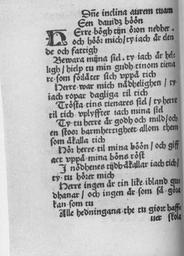 Dñe inclina aurem tuam
Een dauidz böön
HErre bögh tijn öron nedher
och höör mich/ ty iach är elen
de och fatigh
Bewara mijna siäl/ ty iach är he
ligh/ hielp tu min gudh thinom tiena
re som forlåter sich vppå tich
Herre war mich nådheligh/ ty
iach ropar daghliga til tich
Trösta tins tienares siäl/ ty Herre
til tich vplyffter iach mina siäl
Ty tu herre är godh och mild/ och
en stoor barmhertighett allom them
som åkalla tich
Hör herre til mina böön/ och giff
act vppå mina böna röst
J nödhenes tijdh åkallar iach tich/
ty tu hörer mich
Herre ingen är tin like ibland gu
dhanar/ och ingen är som så göra
kan som tu
Alle hedningana the tu giort haffe
uer skola